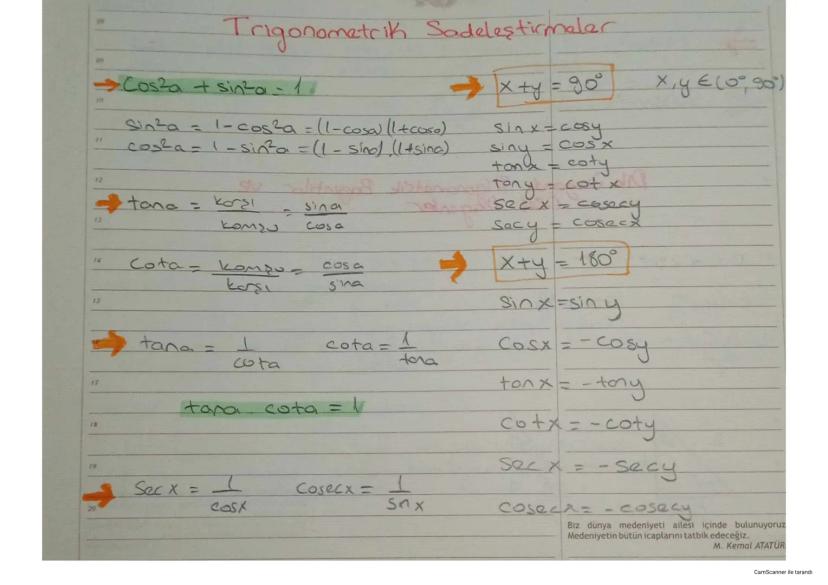 Trigonometrik Sadeleştirmeler
cos²a + sin²a = 1
sin²a = 1-cos²a = (1-cosa)(1+cosa)
cos²a = 1-sin²a = (1-sina).(1+sina)
tana = karşı/komşu = sina/cosa
cota = komşu/karşı = cosa/sina
tana = 1/cota cota = 1/tana
tana . cota = 1
Sec x = 1/cosx Cosecx = 1/snx
x+y = 90° x,y ∈ (0°,90°)
sinx = cosy
siny = cosx
tanx = coty
tany = cotx
sec x = cosecy
secy = cosecx
x+y = 180°
sinx = siny
Cosx = -cosy
tanx = -tany
cotx = -coty
secx = -secy
cosecx = -cosecy
Biz dünya medeniyeti ailesi içinde bulunuyoruz
Medeniyetin bütün icaplarını tatbik edeceğiz.
M. Kemal ATATÜR
CamScanner ile tarandı